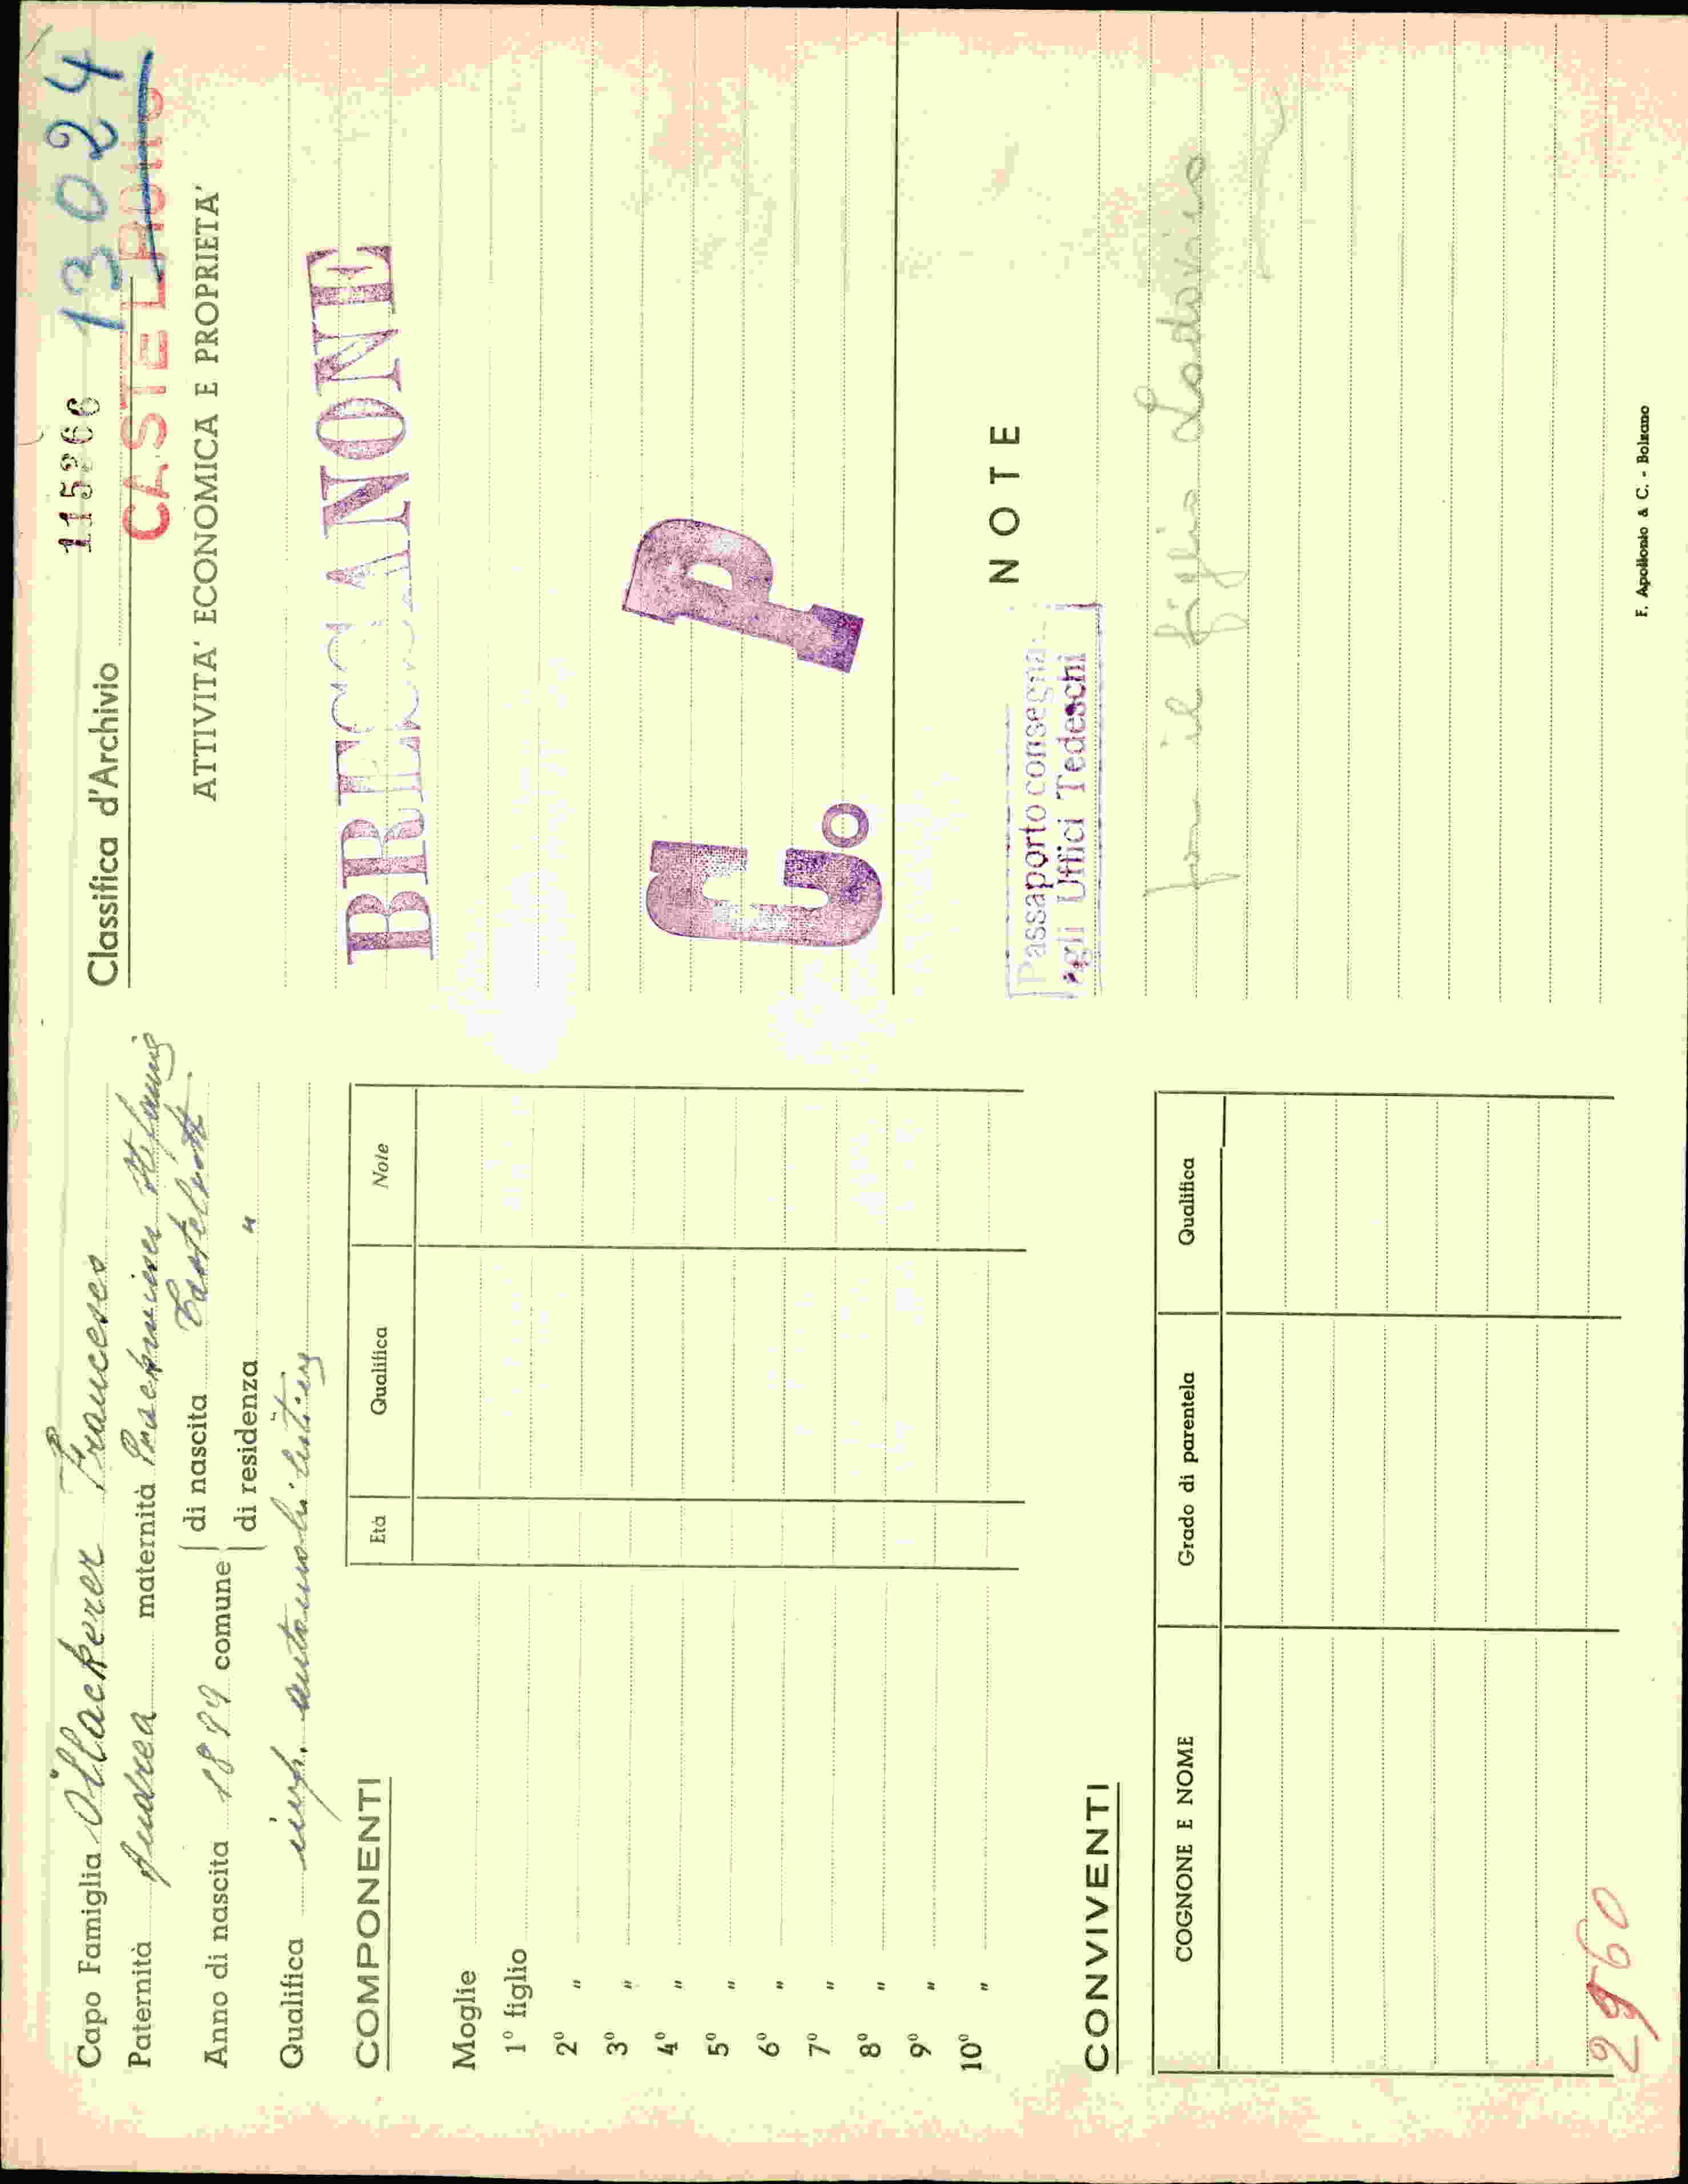 Capo Famiglia Öllackerer Francesco
Paternità Andrea maternità
Anno di nascita 1899 comune di nascita Castelrotto
di residenza "
Qualifica imp.
COMPONENTI
Età Qualifica Note
Moglie
1º figlio
2º "
3º "
4º "
5º "
6º "
7º "
8º "
9º "
10º "
CONVIVENTI
COGNONE E NOME Grado di parentela Qualifica
2960
Classifica d'Archivio 115266 13024
CASTELROTTO
ATTIVITA' ECONOMICA E PROPRIETA'
BRESSANONE
G. P
NOTE
Passaporto consegna
agli Uffici Tedeschi
il figlio Lodovico
F. Apollonio & C. - Bolzano